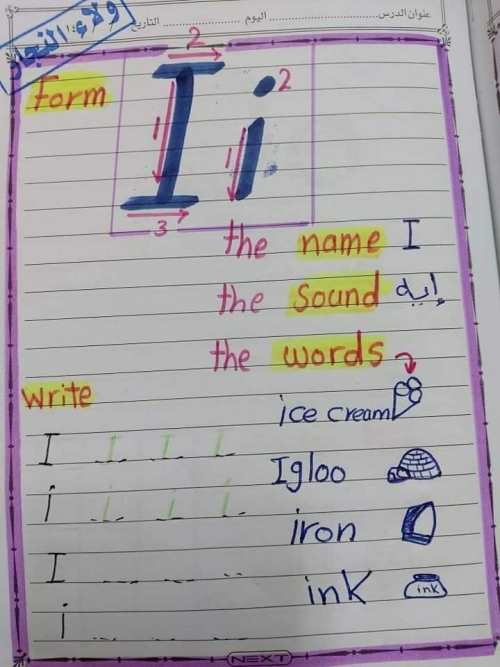 عنوان الدرس ........ اليوم ........ التاريخ ........
ولاء النجار
Form
I i
2
1
3
2
1
the name I
the sound إيه
the words
write
ice cream
I I I I
Igloo
i i i i
iron
I
ink
ink
i
NEXT